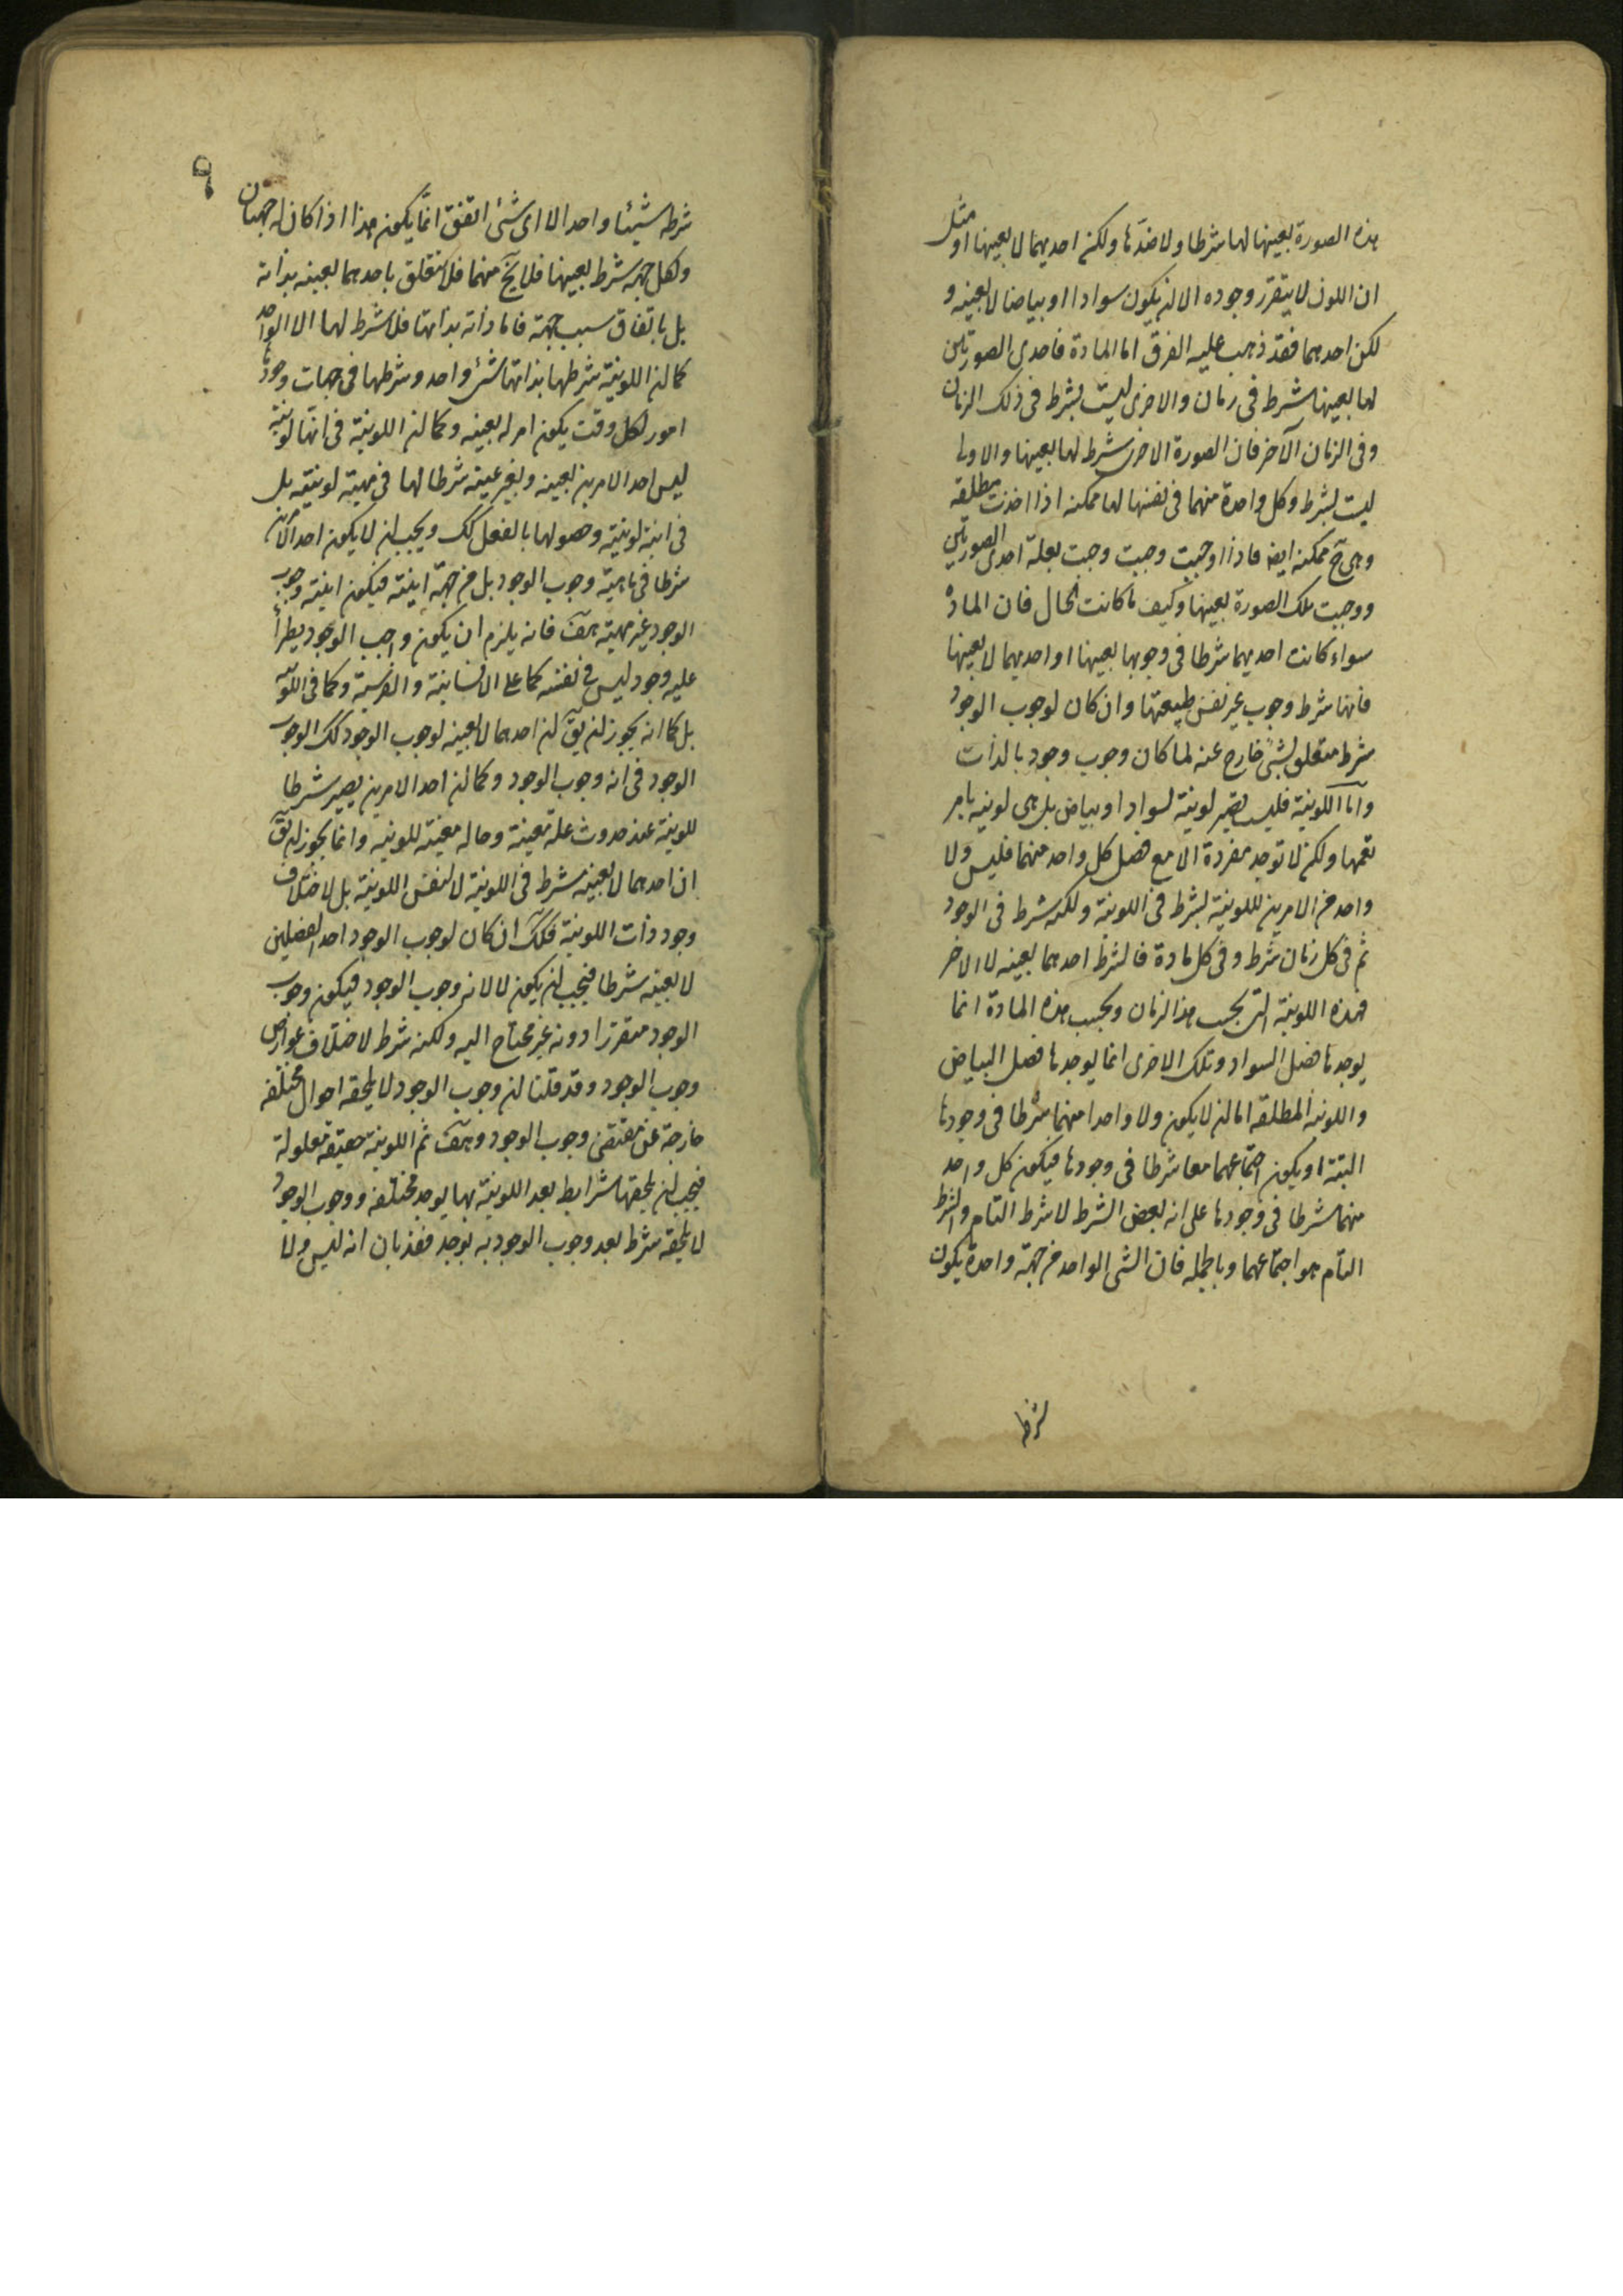 هذه الصورة بعينها لها شرطا ولا ضدّها ولكن احديهما لا بعينها او مثل
ان اللون لا يتقرر وجوده الا ان يكون سوادا او بياضا لا بعينه و
لكن احدهما فقد ذهب عليه الفرق اما المادة فاحدى الصورتين
لها بعينها شرط فى زمان والاخرى ليست بشرط فى ذلك الزمان
وفى الزمان الآخر فان الصورة الاخرى شرط لها بعينها والاولى
ليست بشرط وكل واحدة منهما فى نفسها لها ممكنه اذا اخذت مطلقه
وهى ح ممكنه ايض فاذا اوجبت وجبت وجبت بعلة احدى الصورتين
ووجبت تلك الصورة بعينها وكيف ما كانت الحال فان المادة
سواء كانت احديهما شرطا فى وجوبها بعينها او احديهما لا بعينها
فانها شرط وجوب غير نفس طبيعتها وان كان لوجوب الوجود
شرط متعلق بشئ خارج عنه لما كان وجوب وجود بالذات
وامّا اللونية فليس تصير لونية لسواد او بياض بل هى لونيه بامر
يعمها ولكن لا توجد مفردة الا مع فصل كل واحد منهما فليس ولا
واحد من الامرين للونية بشرط فى اللونية ولكنه شرط فى الوجود
ثم فى كل زمان شرط وفى كل مادة فالشرط احدهما بعينه لا الاخر
فهذه اللونية التى بحسب هذا الزمان وبحسب هذه المادة انما
يوجدها فصل السواد وتلك الاخرى انما يوجدها فصل البياض
واللونية المطلقه اما ان لا يكون ولا واحدا منهما شرطا فى وجودها
البتة او يكون اجتماعهما معا شرطا فى وجودها فيكون كل واحد
منهما شرطا فى وجودها على انه بعض الشرط لا شرط التام والشرط
التام هو اجتماعهما وبالجمله فان الشئ الواحد من جهة واحدة يكون
شرطه
٩
شرطه شيئا واحدا لا اى شئ اتفق انما يكون هذا اذا كان له جهتان
ولكل جهه شرط بعينها فلا يخ منهما فلا تتعلق باحدهما بعينه بذاته
بل باتفاق سبب جهة فاما ذاته بذاتها فلا شرط لها الا الواحد
كما ان اللونية شرطها بذاتها شئ واحد وشرطها فى جهات وجودها
امور لكل وقت يكون امر له بعينه وكما ان اللونية فى انها لونية
ليس احد الامرين بعينه وبغير عينه شرطا لها فى مهية لونيتيه بل
فى انية لونيته وحصولها بالفعل كك ويجب ان لا يكون احد الامرين
شرطا فى ماهية وجوب الوجود بل من جهة انيته فيكون انيته وجوب
الوجود غير مهيته هف فانه يلزم ان يكون واجب الوجود يطرأ
عليه وجود ليس فى نفسه كما على الانسانية والفرسية وكما فى اللونيه
بل كما انه يجوز ان يق ان احدهما لا بعينه لوجوب الوجود كك الوجوب
الوجود فى انه وجوب الوجود وكما ان احد الامرين يصير شرطا
للونية عند حدوث علة معينة وحاله معينة للونيه وانما يجوز ان يق
ان احدهما لا بعينه شرط فى اللونية لا لنفس اللونية بل لاختلاف
وجود ذات اللونية فكك ان كان لوجوب الوجود احد الفصلين
لا بعينه شرطا فيجب ان يكون لا لانه وجوب الوجود فيكون وجوب
الوجود متقررا دونه غير محتاج اليه ولكنه شرط لاختلاف عوارض
وجوب الوجود وقد قلنا ان وجوب الوجود لا يلحقه احوال مختلفه
خارجة عن مقتضى وجوب الوجود وهف ثم اللونية حقيقة معلولة
فيجب ان يلحقها شرايط بعد اللونية بها يوجد مختلفه ووجوب الوجود
لا يلحقه شرط بعد وجوب الوجود به يوجد فقد بان انه ليس ولا